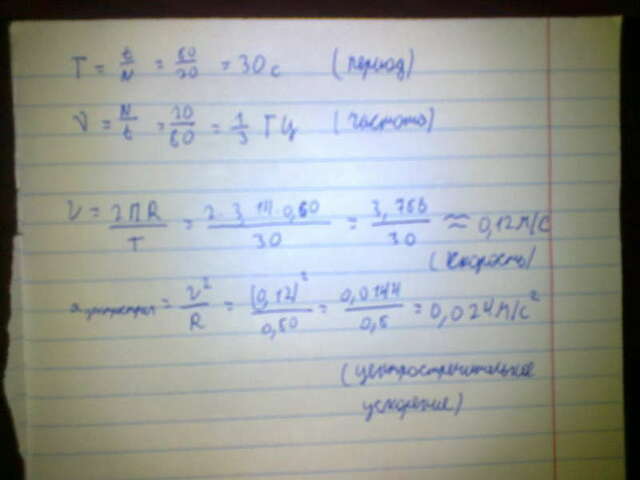 T = t/N = 60/20 = 30 с (период)
ν = N/t = 20/60 = 1/3 Гц (частота)
υ = 2ПR/T = 2·3,14·0,60/30 = 3,768/30 ≈ 0,12 м/с
(скорость)
a = υ²/R = (0,12)²/0,60 = 0,0144/0,6 = 0,024 м/с²
(центростремительное
ускорение)